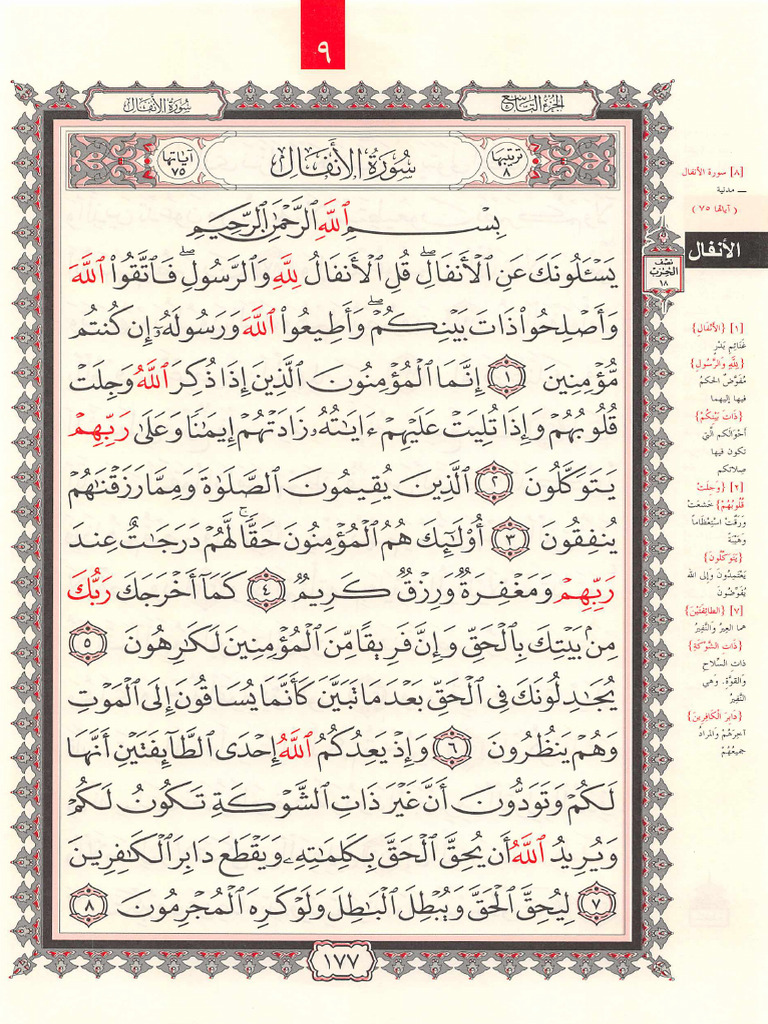 ٩
الجزء التاسع
سورة الأنفال
ترتيبها ٨
سُورَةُ الأَنفَالِ
آياتها ٧٥
بِسْمِ اللَّهِ الرَّحْمَٰنِ الرَّحِيمِ
يَسْـَٔلُونَكَ عَنِ الْأَنفَالِ ۖ قُلِ الْأَنفَالُ لِلَّهِ وَالرَّسُولِ ۖ فَاتَّقُوا۟ اللَّهَ
وَأَصْلِحُوا۟ ذَاتَ بَيْنِكُمْ ۖ وَأَطِيعُوا۟ اللَّهَ وَرَسُولَهُۥٓ إِن كُنتُم
مُّؤْمِنِينَ ١ إِنَّمَا الْمُؤْمِنُونَ الَّذِينَ إِذَا ذُكِرَ اللَّهُ وَجِلَتْ
قُلُوبُهُمْ وَإِذَا تُلِيَتْ عَلَيْهِمْ ءَايَٰتُهُۥ زَادَتْهُمْ إِيمَٰنًا وَعَلَىٰ رَبِّهِمْ
يَتَوَكَّلُونَ ٢ الَّذِينَ يُقِيمُونَ الصَّلَوٰةَ وَمِمَّا رَزَقْنَٰهُمْ
يُنفِقُونَ ٣ أُو۟لَٰٓئِكَ هُمُ الْمُؤْمِنُونَ حَقًّا ۚ لَّهُمْ دَرَجَٰتٌ عِندَ
رَبِّهِمْ وَمَغْفِرَةٌ وَرِزْقٌ كَرِيمٌ ٤ كَمَآ أَخْرَجَكَ رَبُّكَ
مِنۢ بَيْتِكَ بِالْحَقِّ وَإِنَّ فَرِيقًا مِّنَ الْمُؤْمِنِينَ لَكَٰرِهُونَ ٥
يُجَٰدِلُونَكَ فِى الْحَقِّ بَعْدَ مَا تَبَيَّنَ كَأَنَّمَا يُسَاقُونَ إِلَى الْمَوْتِ
وَهُمْ يَنظُرُونَ ٦ وَإِذْ يَعِدُكُمُ اللَّهُ إِحْدَى الطَّآئِفَتَيْنِ أَنَّهَا
لَكُمْ وَتَوَدُّونَ أَنَّ غَيْرَ ذَاتِ الشَّوْكَةِ تَكُونُ لَكُمْ
وَيُرِيدُ اللَّهُ أَن يُحِقَّ الْحَقَّ بِكَلِمَٰتِهِۦ وَيَقْطَعَ دَابِرَ الْكَٰفِرِينَ
٧ لِيُحِقَّ الْحَقَّ وَيُبْطِلَ الْبَٰطِلَ وَلَوْ كَرِهَ الْمُجْرِمُونَ ٨
١٧٧
[٨] سورة الأنفال
ــ مدنية
( آياتها ٧٥ )
الأنفال
نصف
الحزب
١٨
[١] {الأَنْفَالِ}
غَنَائِمِ بَدْرٍ
{لِلَّهِ وَالرَّسُولِ}
مُفَوَّضٌ الحكمُ
فيها إليهما
{ذَاتَ بَيْنِكُمْ}
أحْوَالَكم الَّتِي
تكون فيها
صِلاتكم
[٢] {وَجِلَتْ
قُلُوبُهُمْ} خَشعَتْ
وَرَقَّتْ اسْتِعْظَاماً
وَهَيْبَةً
{يَتَوَكَّلُونَ}
يَعْتَمِدُونَ وإلى الله
يُفَوِّضُونَ
[٧] {الطَّائِفَتَيْنِ}
هما العِيرُ وَالنَّفِيرُ
{ذَاتِ الشَّوْكَةِ}
ذاتِ السِّلاحِ
والقوَّةِ، وَهِي
النَّفِيرُ
{دَابِرَ الْكَافِرِينَ}
آخِرَهُمْ وَالمرادُ
جميعُهُمْ